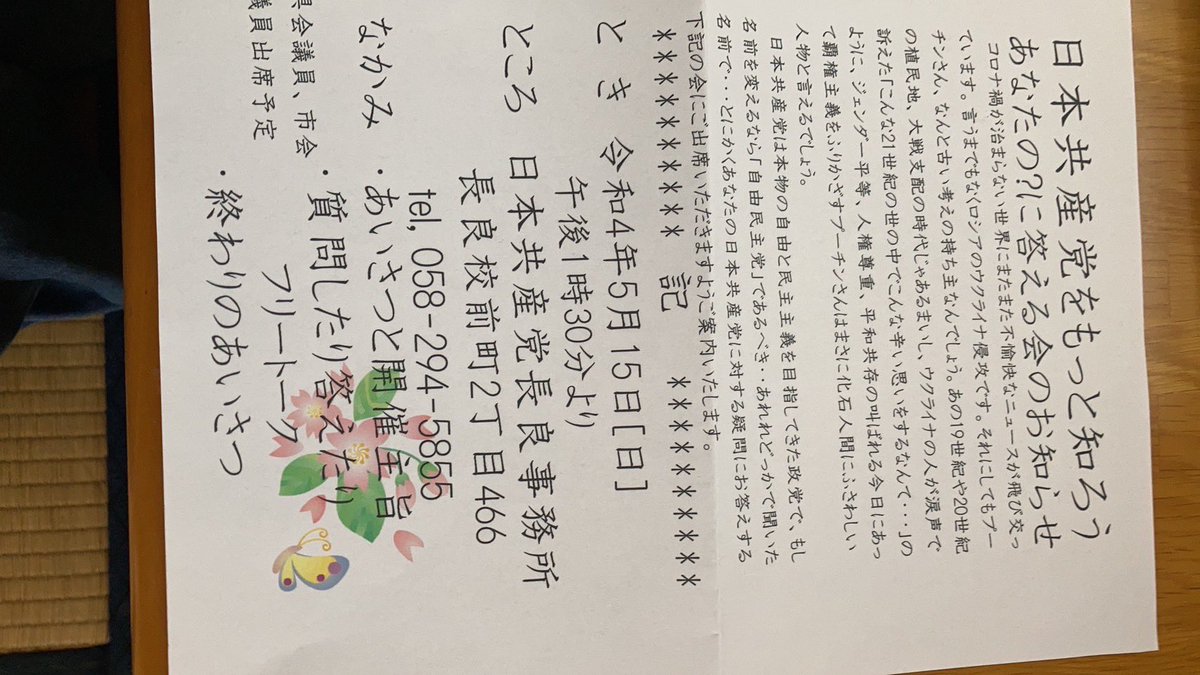 日本共産党をもっと知ろう
あなたの?に答える会のお知らせ
コロナ禍が治まらない世界にまたまた不愉快なニュースが飛び交っ
ています。言うまでもなくロシアのウクライナ侵攻です。それにしてもプー
チンさん、なんと古い考えの持ち主なんでしょう。あの19世紀や20世紀
の植民地、大戦支配の時代じゃあるまいし、ウクライナの人が涙声で
訴えた「こんな21世紀の世の中でこんな辛い思いをするなんて・・・」の
ように、ジェンダー平等、人権尊重、平和共存の叫ばれる今日にあっ
て覇権主義をふりかざすプーチンさんはまさに化石人間にふさわしい
人物と言えるでしょう。
日本共産党は本物の自由と民主主義を目指してきた政党で、もし
名前を変えるなら「自由民主党」であるべき・・あれれどっかで聞いた
名前で・・・とにかくあなたの日本共産党に対する疑問にお答えする
下記の会にご出席いただきますようご案内いたします。
********* 記 *********
とき 令和4年5月15日[日]
午後1時30分より
ところ 日本共産党長良事務所
長良校前町2丁目466
tel, 058-294-5855
なかみ ・あいさつと開催主旨
・質問したり答えたり
フリートーク
・終わりのあいさつ
県会議員、市会
議員出席予定